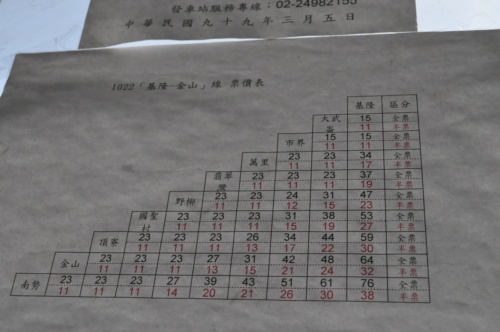 發車站服務專線：02-24982155
中華民國九十九年三月五日
1022「基隆-金山」線 票價表
基隆 區分
大武崙 15 全票
11 半票
市界 15 15 全票
11 11 半票
萬里 23 23 34 全票
11 11 17 半票
翡翠灣 23 23 23 37 全票
11 11 11 19 半票
野柳 23 23 24 31 47 全票
11 11 12 15 23 半票
國聖村 23 23 23 31 38 53 全票
11 11 11 15 19 27 半票
頂寮 23 23 23 26 34 44 59 全票
11 11 11 13 17 22 30 半票
金山 23 23 23 27 31 42 48 64 全票
11 11 11 13 15 21 24 32 半票
南勢 23 23 23 27 39 43 51 61 76 全票
11 11 11 14 20 21 26 30 38 半票